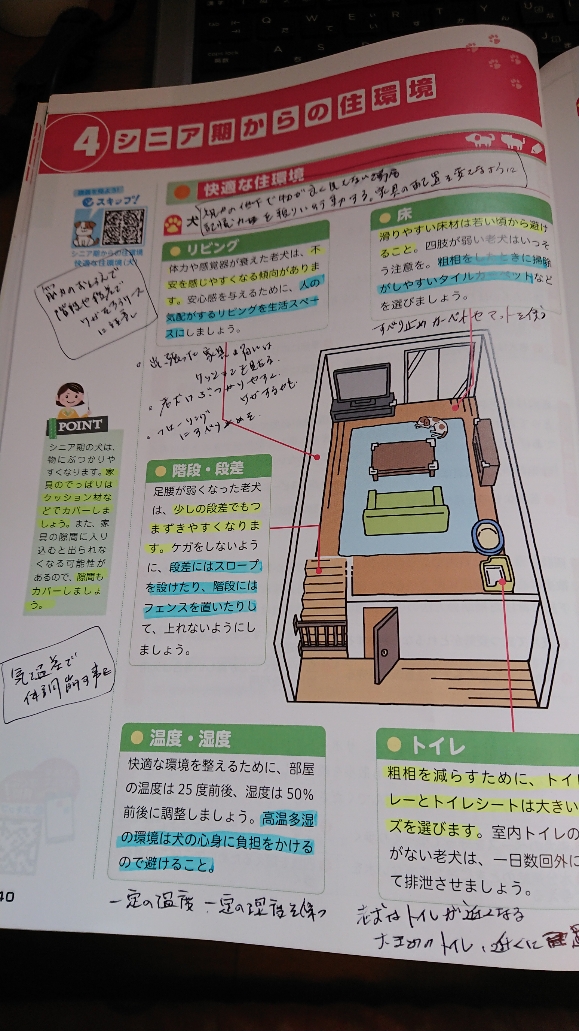 4 シニア期からの住環境
動画を見よう!
eスキップ!
シニア期からの住環境
快適な住環境(犬)
快適な住環境
犬
リビング
体力や感覚器が衰えた老犬は、不
安を感じやすくなる傾向がありま
す。安心感を与えるために、人の
気配がするリビングを生活スペー
スにしましょう。
床
滑りやすい床材は若い頃から避け
ること。四肢が弱い老犬はいっそ
う注意を。粗相をしたときに掃除
がしやすいタイルカーペットなど
を選びましょう。
すべり止めカーペットやマットを使う
出張った家具の角には
クッションを
老犬はぶつかりやすく
フローリング
にすべり止めを
POINT
シニア期の犬は、
物にぶつかりやす
くなります。家
具のでっぱりは
クッション材な
どでカバーしま
しょう。また、家
具の隙間に入り
込むと出られな
くなる可能性が
あるので、隙間も
カバーしましょ
う。
階段・段差
足腰が弱くなった老犬
は、少しの段差でもつ
まずきやすくなりま
す。ケガをしないよう
に、段差にはスロープ
を設けたり、階段には
フェンスを置いたりし
て、上れないようにし
ましょう。
気温差で
体調崩す事も
温度・湿度
快適な環境を整えるために、部屋
の温度は25度前後、湿度は50%
前後に調整しましょう。高温多湿
の環境は犬の心身に負担をかける
ので避けること。
一定の温度 一定の湿度を保つ
トイレ
粗相を減らすために、トイレ
レーとトイレシートは大きい
ズを選びます。室内トイレの
がない老犬は、一日数回外に
て排泄させましょう。
老犬はトイレが近くなる
大きめのトイレ、近くに
40